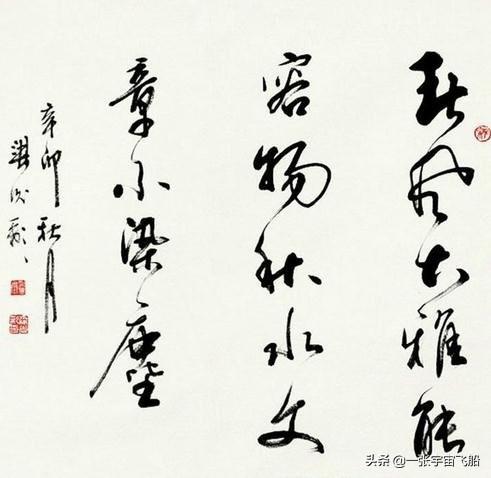 春風大雅能
容物秋水文
章不染塵
辛卯秋月
头条 @一张宇宙飞船